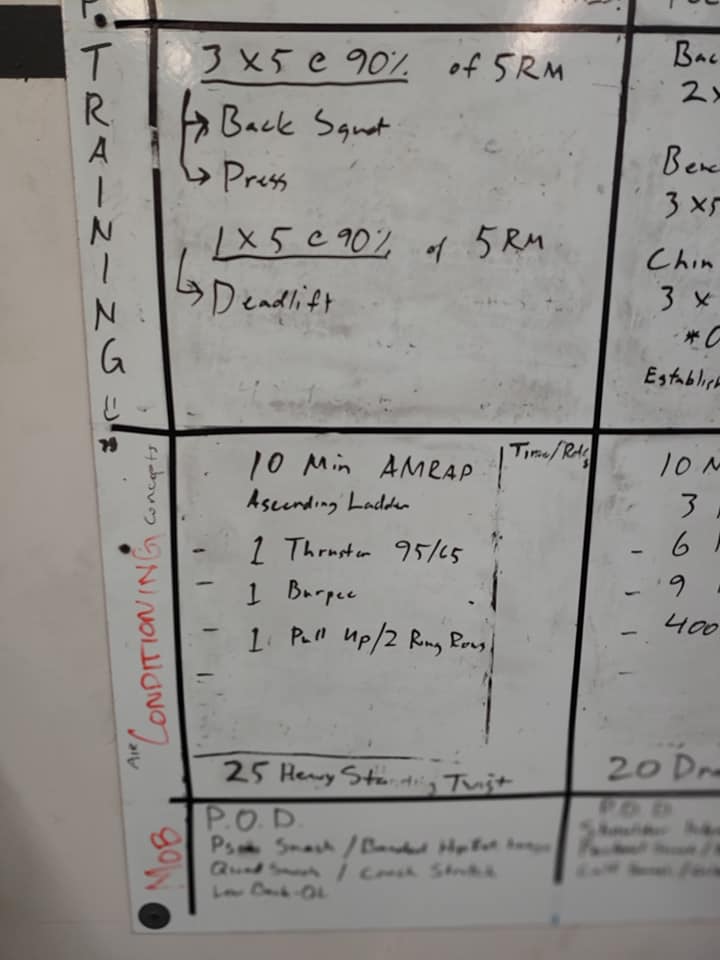 TRAINING
3 X 5 @ 90% of 5RM
Back Squat
Press
1 X 5 @ 90% of 5RM
Deadlift
Bac
2x
Benc
3 x5
Chin
3 x
*
Establish
CONDITIONING Concepts
AIR
10 Min AMRAP
Time/Rds
Ascending Ladder
- 1 Thruster 95/65
- 1 Burpee
- 1 Pull Up/2 Ring Rows
-
25 Heavy Standing Twist
10 M
3
- 6
- 9
- 400
-
20 Dra
MOB
P.O.D.
Psoas Smash / Banded Hip
Quad Smash / Couch Stretch
Low Back-QL
P.O.D
Shoulder